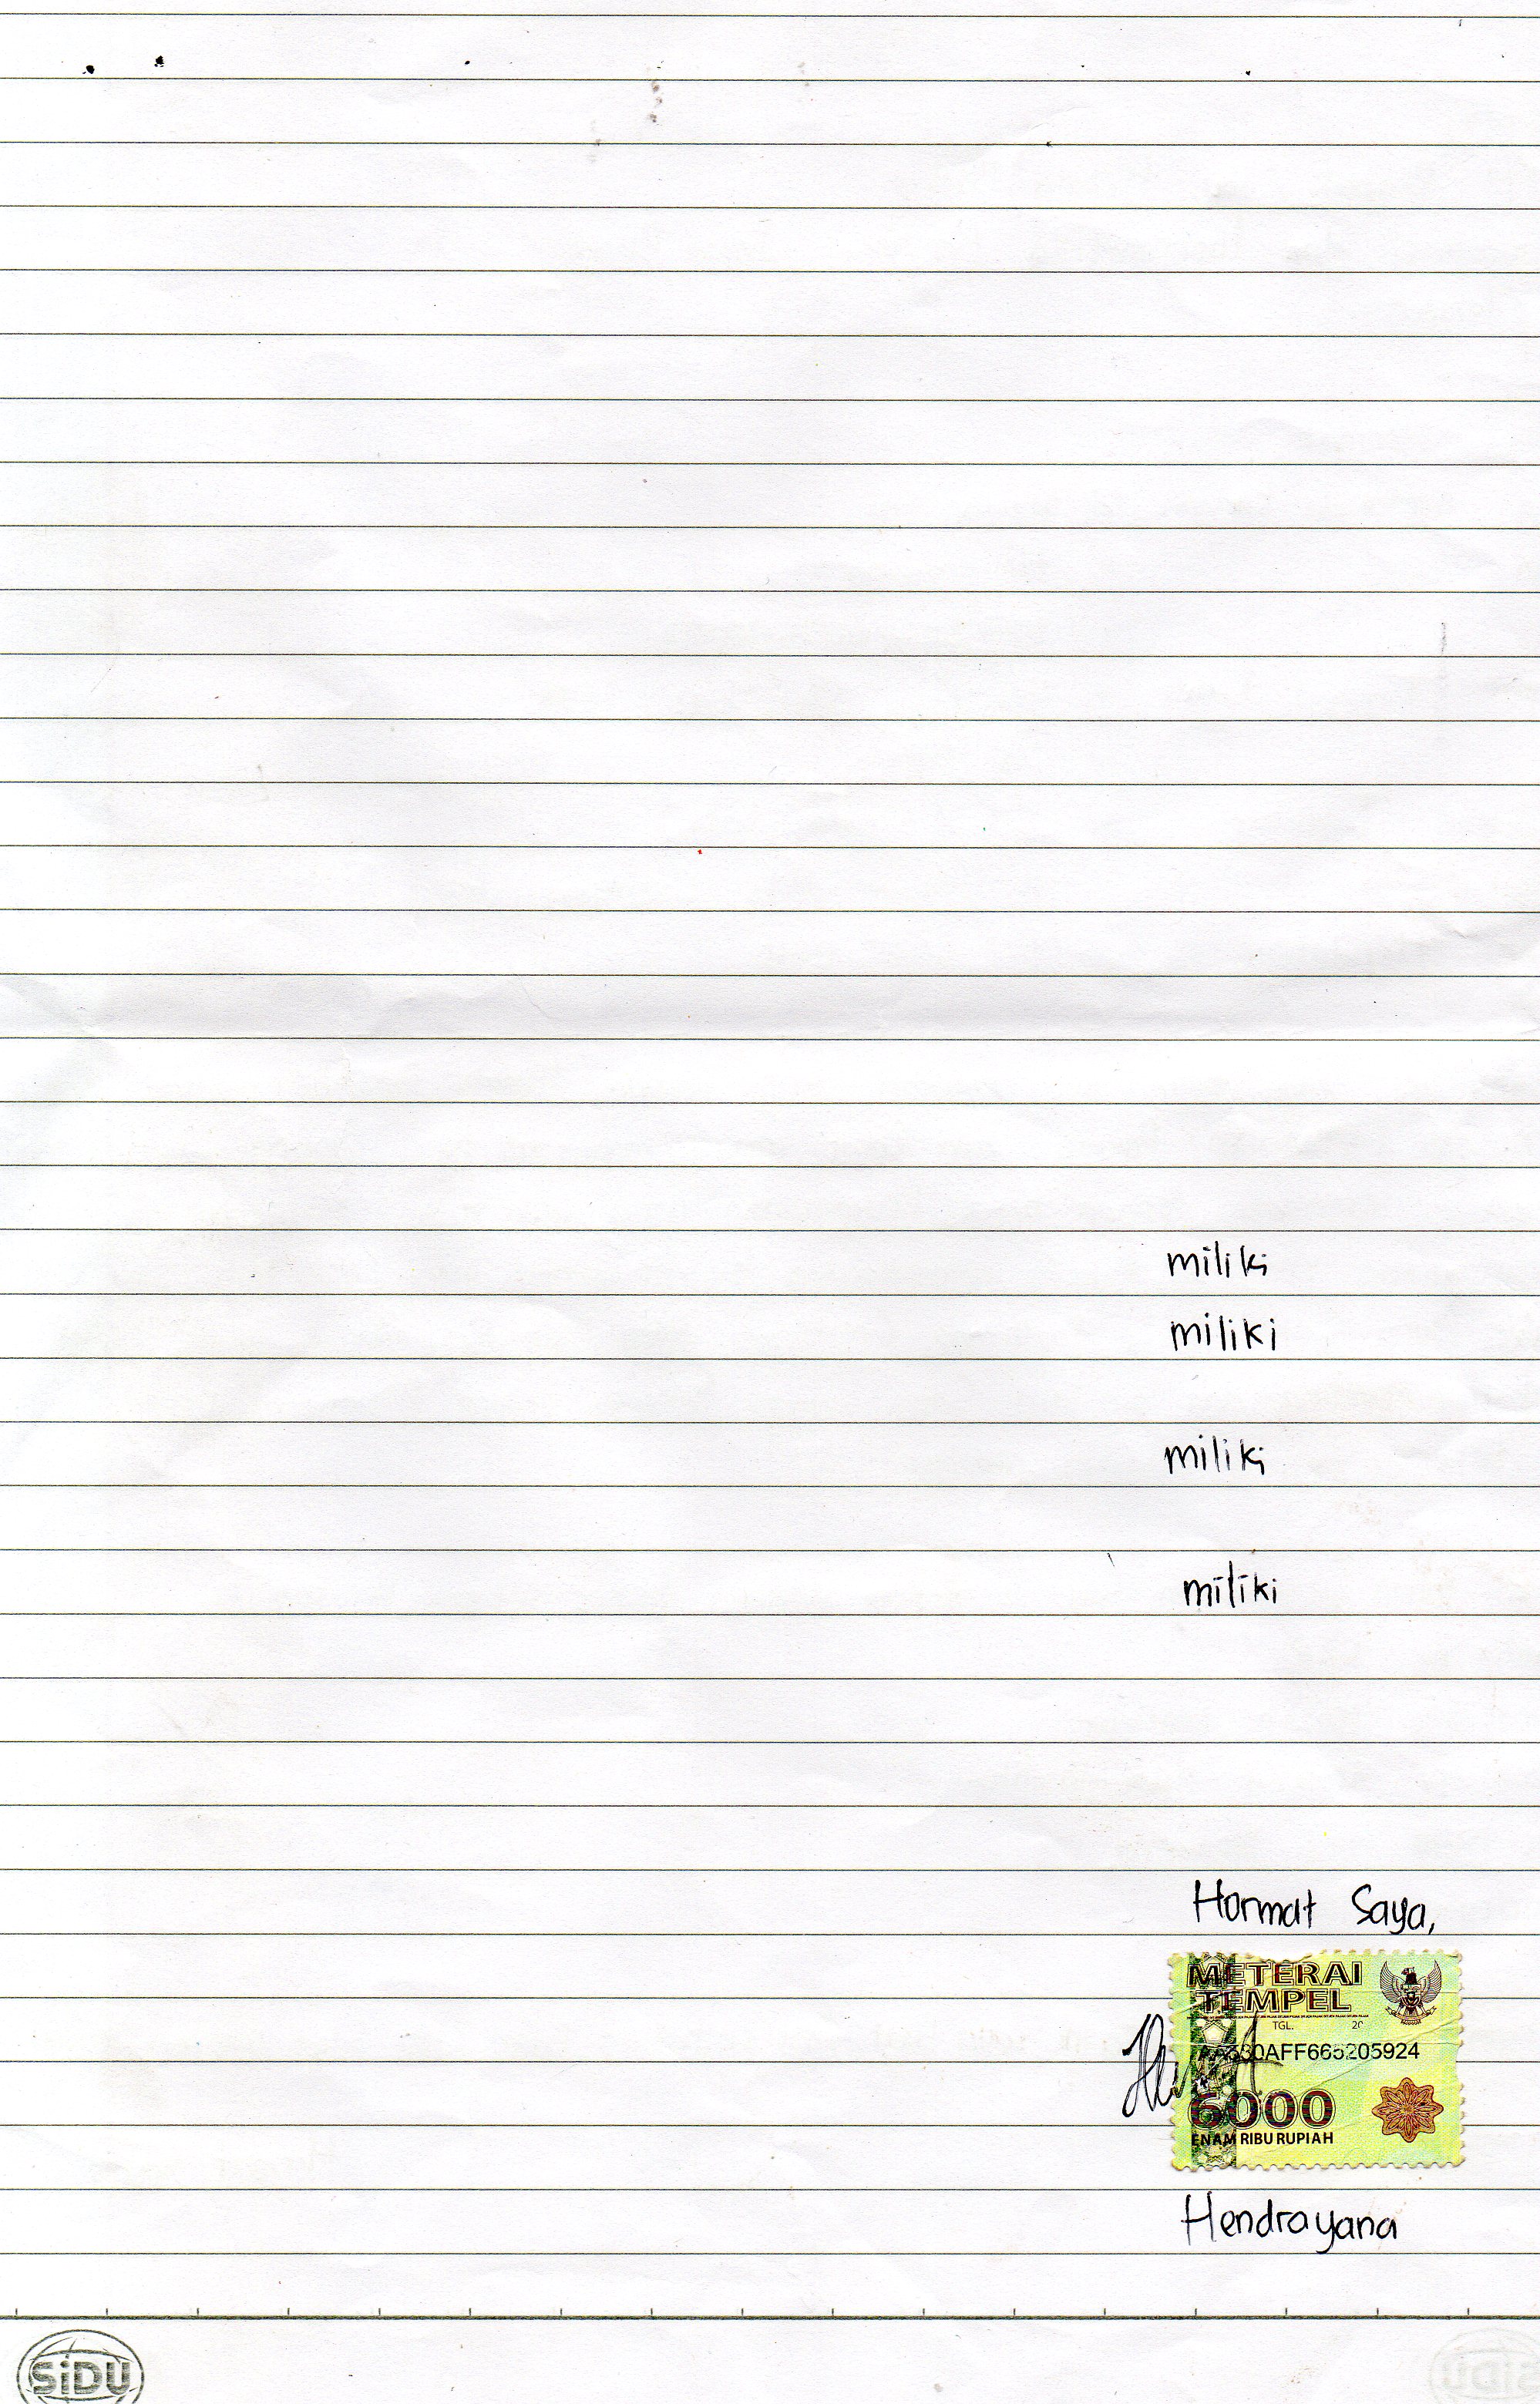 miliki
miliki
miliki
miliki
Hormat Saya,
METERAI
TEMPEL
TGL. 20
30AFF665205924
6000
ENAM RIBU RUPIAH
Hendrayana
SiDU